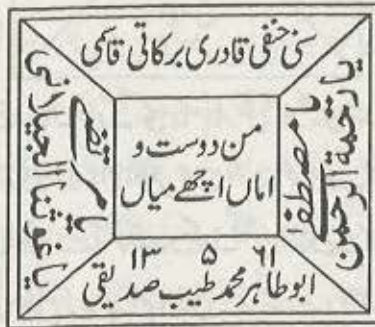 سنی حنفی قادری برکاتی قاسمی
یا رحمۃ الرحمن
یا مصطفےٰ
من دوست و
اماں اچھے میاں
یا مرتضےٰ
یا غوثنا الجیلانی
۱۳ ۵ ۶۱
ابو طاہر محمد طیب صدیقی